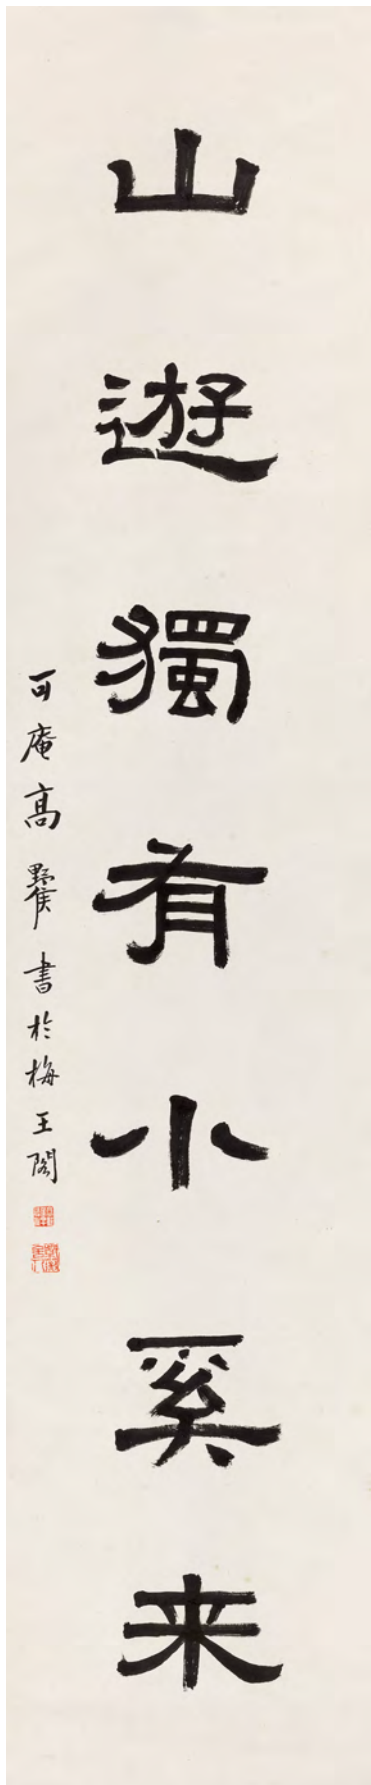 山遊獨有小奚来
可庵高 書於梅王閣